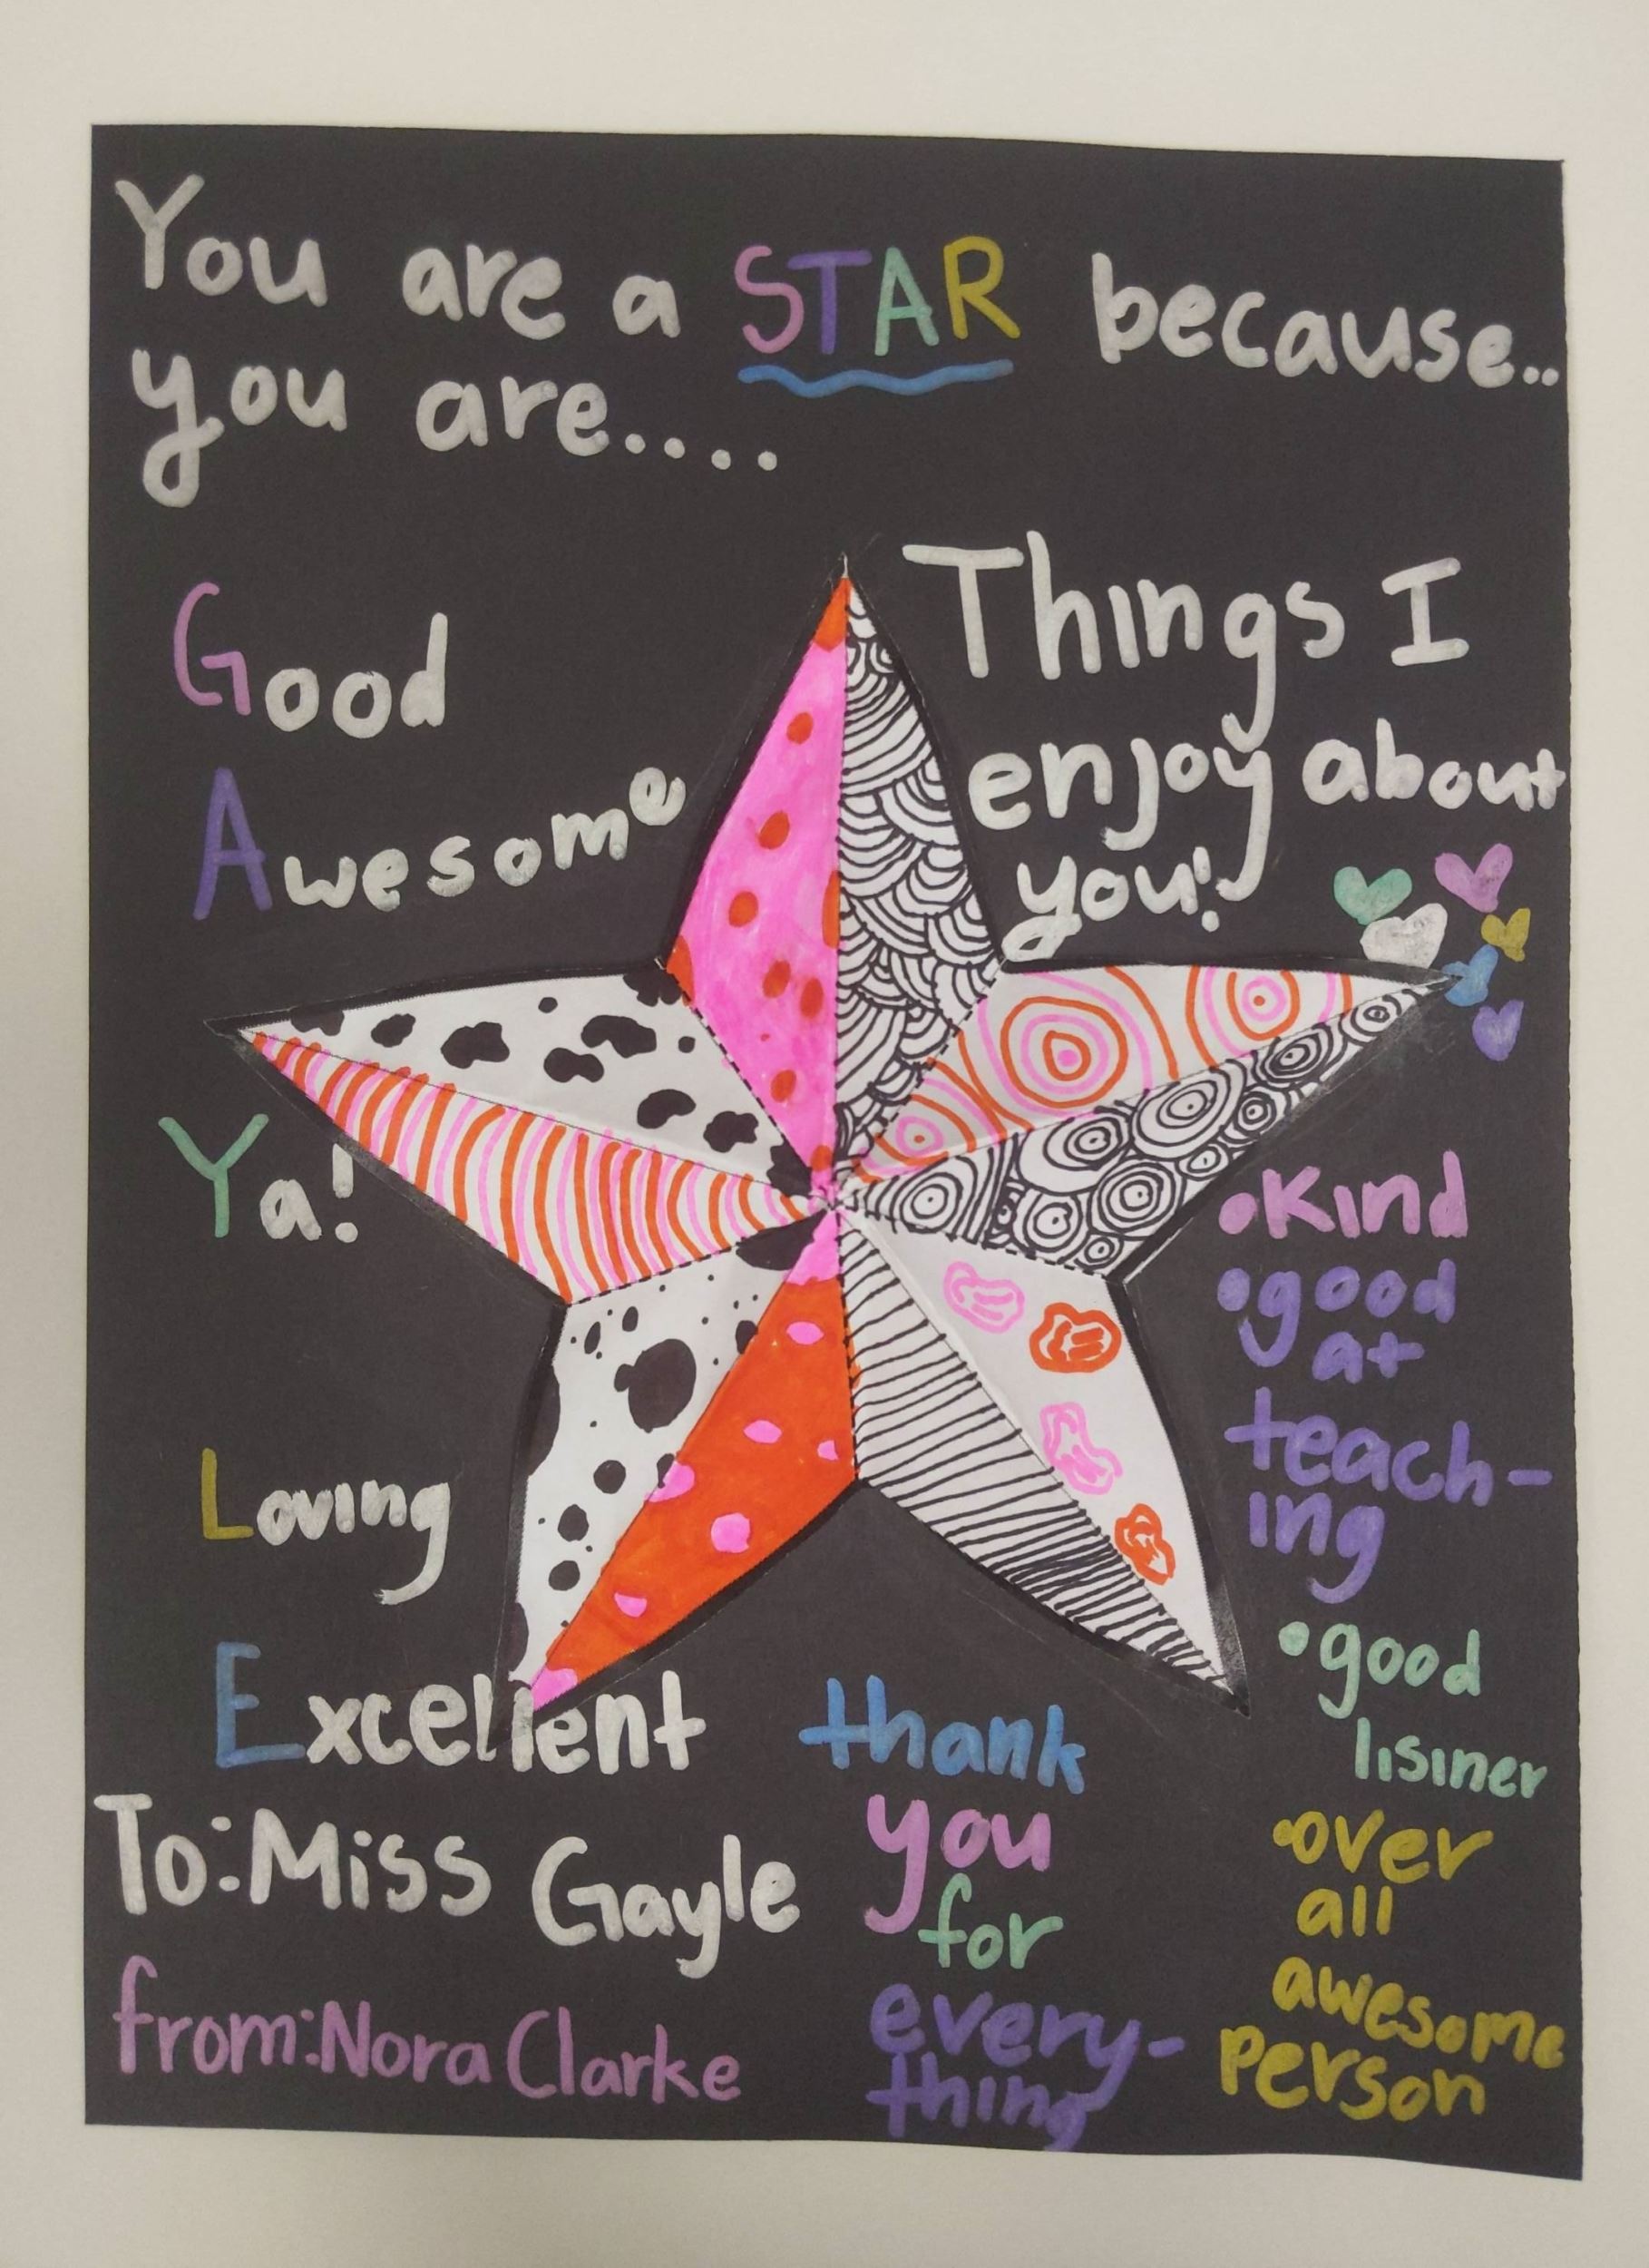 You are a STAR because..
you are....
Good
Awesome
Ya!
Loving
Excellent
To: Miss Gayle
from: Nora Clarke
Things I
enjoy about
you!
•Kind
•good
at
teach-
ing
•good
lisiner
•over
all
awesome
person
thank
you
for
every-
thing